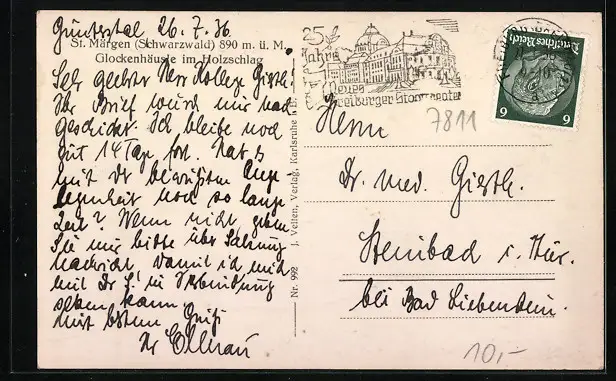 Günterstal 26.7.36
St. Märgen (Schwarzwald) 890 m. ü. M.
Glockenhäusle im Holzschlag
Sehr geehrter Herr Kollege
Ihr Brief wird mir nach
geschickt. Ich bleibe noch
gut 14 Tage fort. Hat es
mit der bewußten Ange
legenheit noch so lange
Zeit? Wenn nicht geben
Sie mir bitte über Salzung
Nachricht damit ich mich
mit Dr S. in Verbindung
setzen kann.
Mit bestem Gruß
Ihr
Nr. 992 J. Velten, Verlag, Karlsruhe i. B.
25
Jahre
Neues
Freiburger Stadttheater
Deutsches Reich
6 6
7811
Herrn
Dr. med.
Steinbad i. Thür.
bei Bad Liebenstein.
10,-